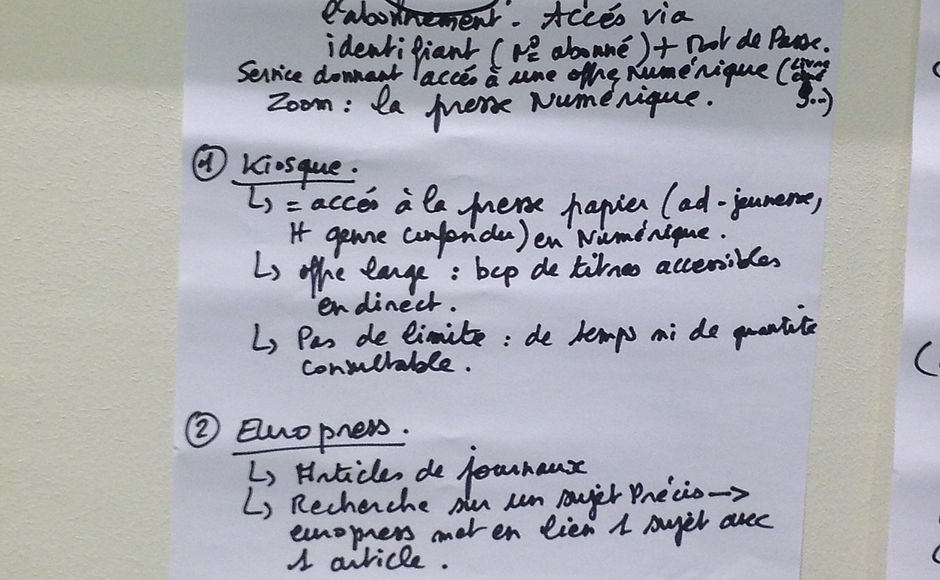 l'abonnement. Accés via
identifiant (N° abonné) + Mot de Passe.
Service donnant l'accés à une offre Numérique (Livre
ciné
Zoom : la presse Numérique. 9...)
① Kiosque.
↳ = accés à la presse papier (ad-jeunesse,
tt genre confondu) en Numérique.
↳ offre large : bcp de titres accessibles
en direct.
↳ Pas de limite : de temps ni de quantité
consultable.
② Europress.
↳ Articles de journaux
↳ Recherche sur un sujet Précis →
europress met en lien 1 sujet avec
1 article.